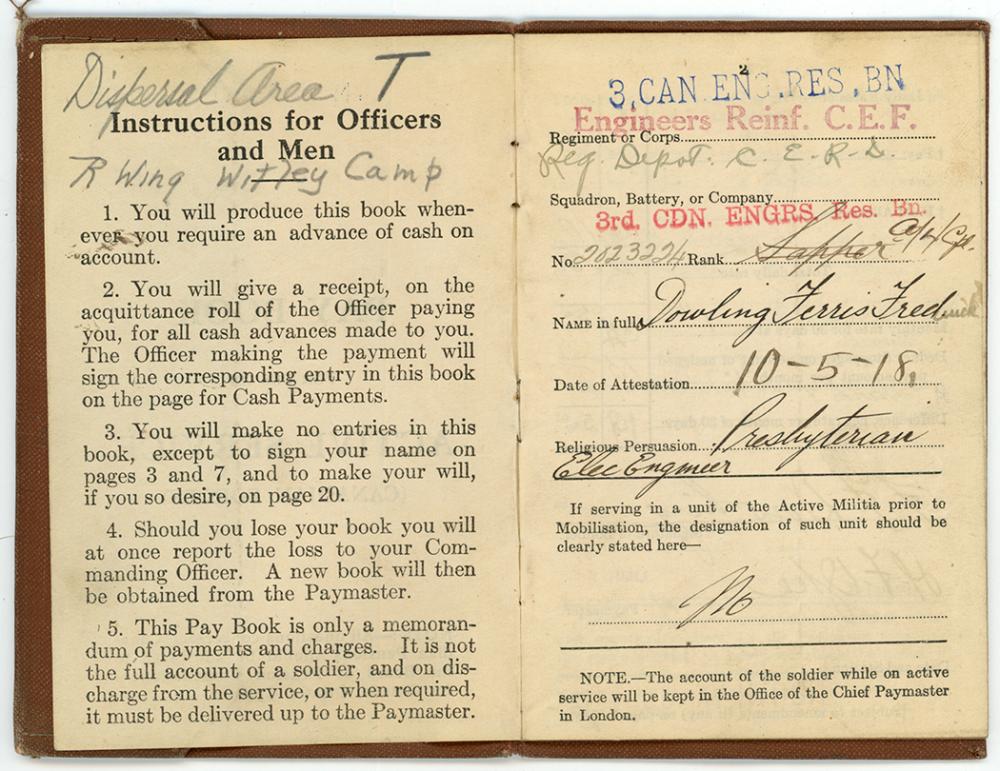 Dispersal Area T
Instructions for Officers
and Men
R Wing Witley Camp
1. You will produce this book when-
ever you require an advance of cash on
account.
2. You will give a receipt, on the
acquittance roll of the Officer paying
you, for all cash advances made to you.
The Officer making the payment will
sign the corresponding entry in this book
on the page for Cash Payments.
3. You will make no entries in this
book, except to sign your name on
pages 3 and 7, and to make your will,
if you so desire, on page 20.
4. Should you lose your book you will
at once report the loss to your Com-
manding Officer. A new book will then
be obtained from the Paymaster.
5. This Pay Book is only a memoran-
dum of payments and charges. It is not
the full account of a soldier, and on dis-
charge from the service, or when required,
it must be delivered up to the Paymaster.
2
3, CAN ENG. RES, BN
Engineers Reinf. C.E.F.
Regiment or Corps
Reg. Depot. C. E. R. D.
Squadron, Battery, or Company
3rd. CDN. ENGRS. Res. Bn.
No. 2023224 Rank Sapper A/L/Cpl.
NAME in full Dowling Ferris Frederick
Date of Attestation 10-5-18.
Religious Persuasion Presbyterian
Elec Engineer
If serving in a unit of the Active Militia prior to
Mobilisation, the designation of such unit should be
clearly stated here—
No
NOTE.—The account of the soldier while on active
service will be kept in the Office of the Chief Paymaster
in London.